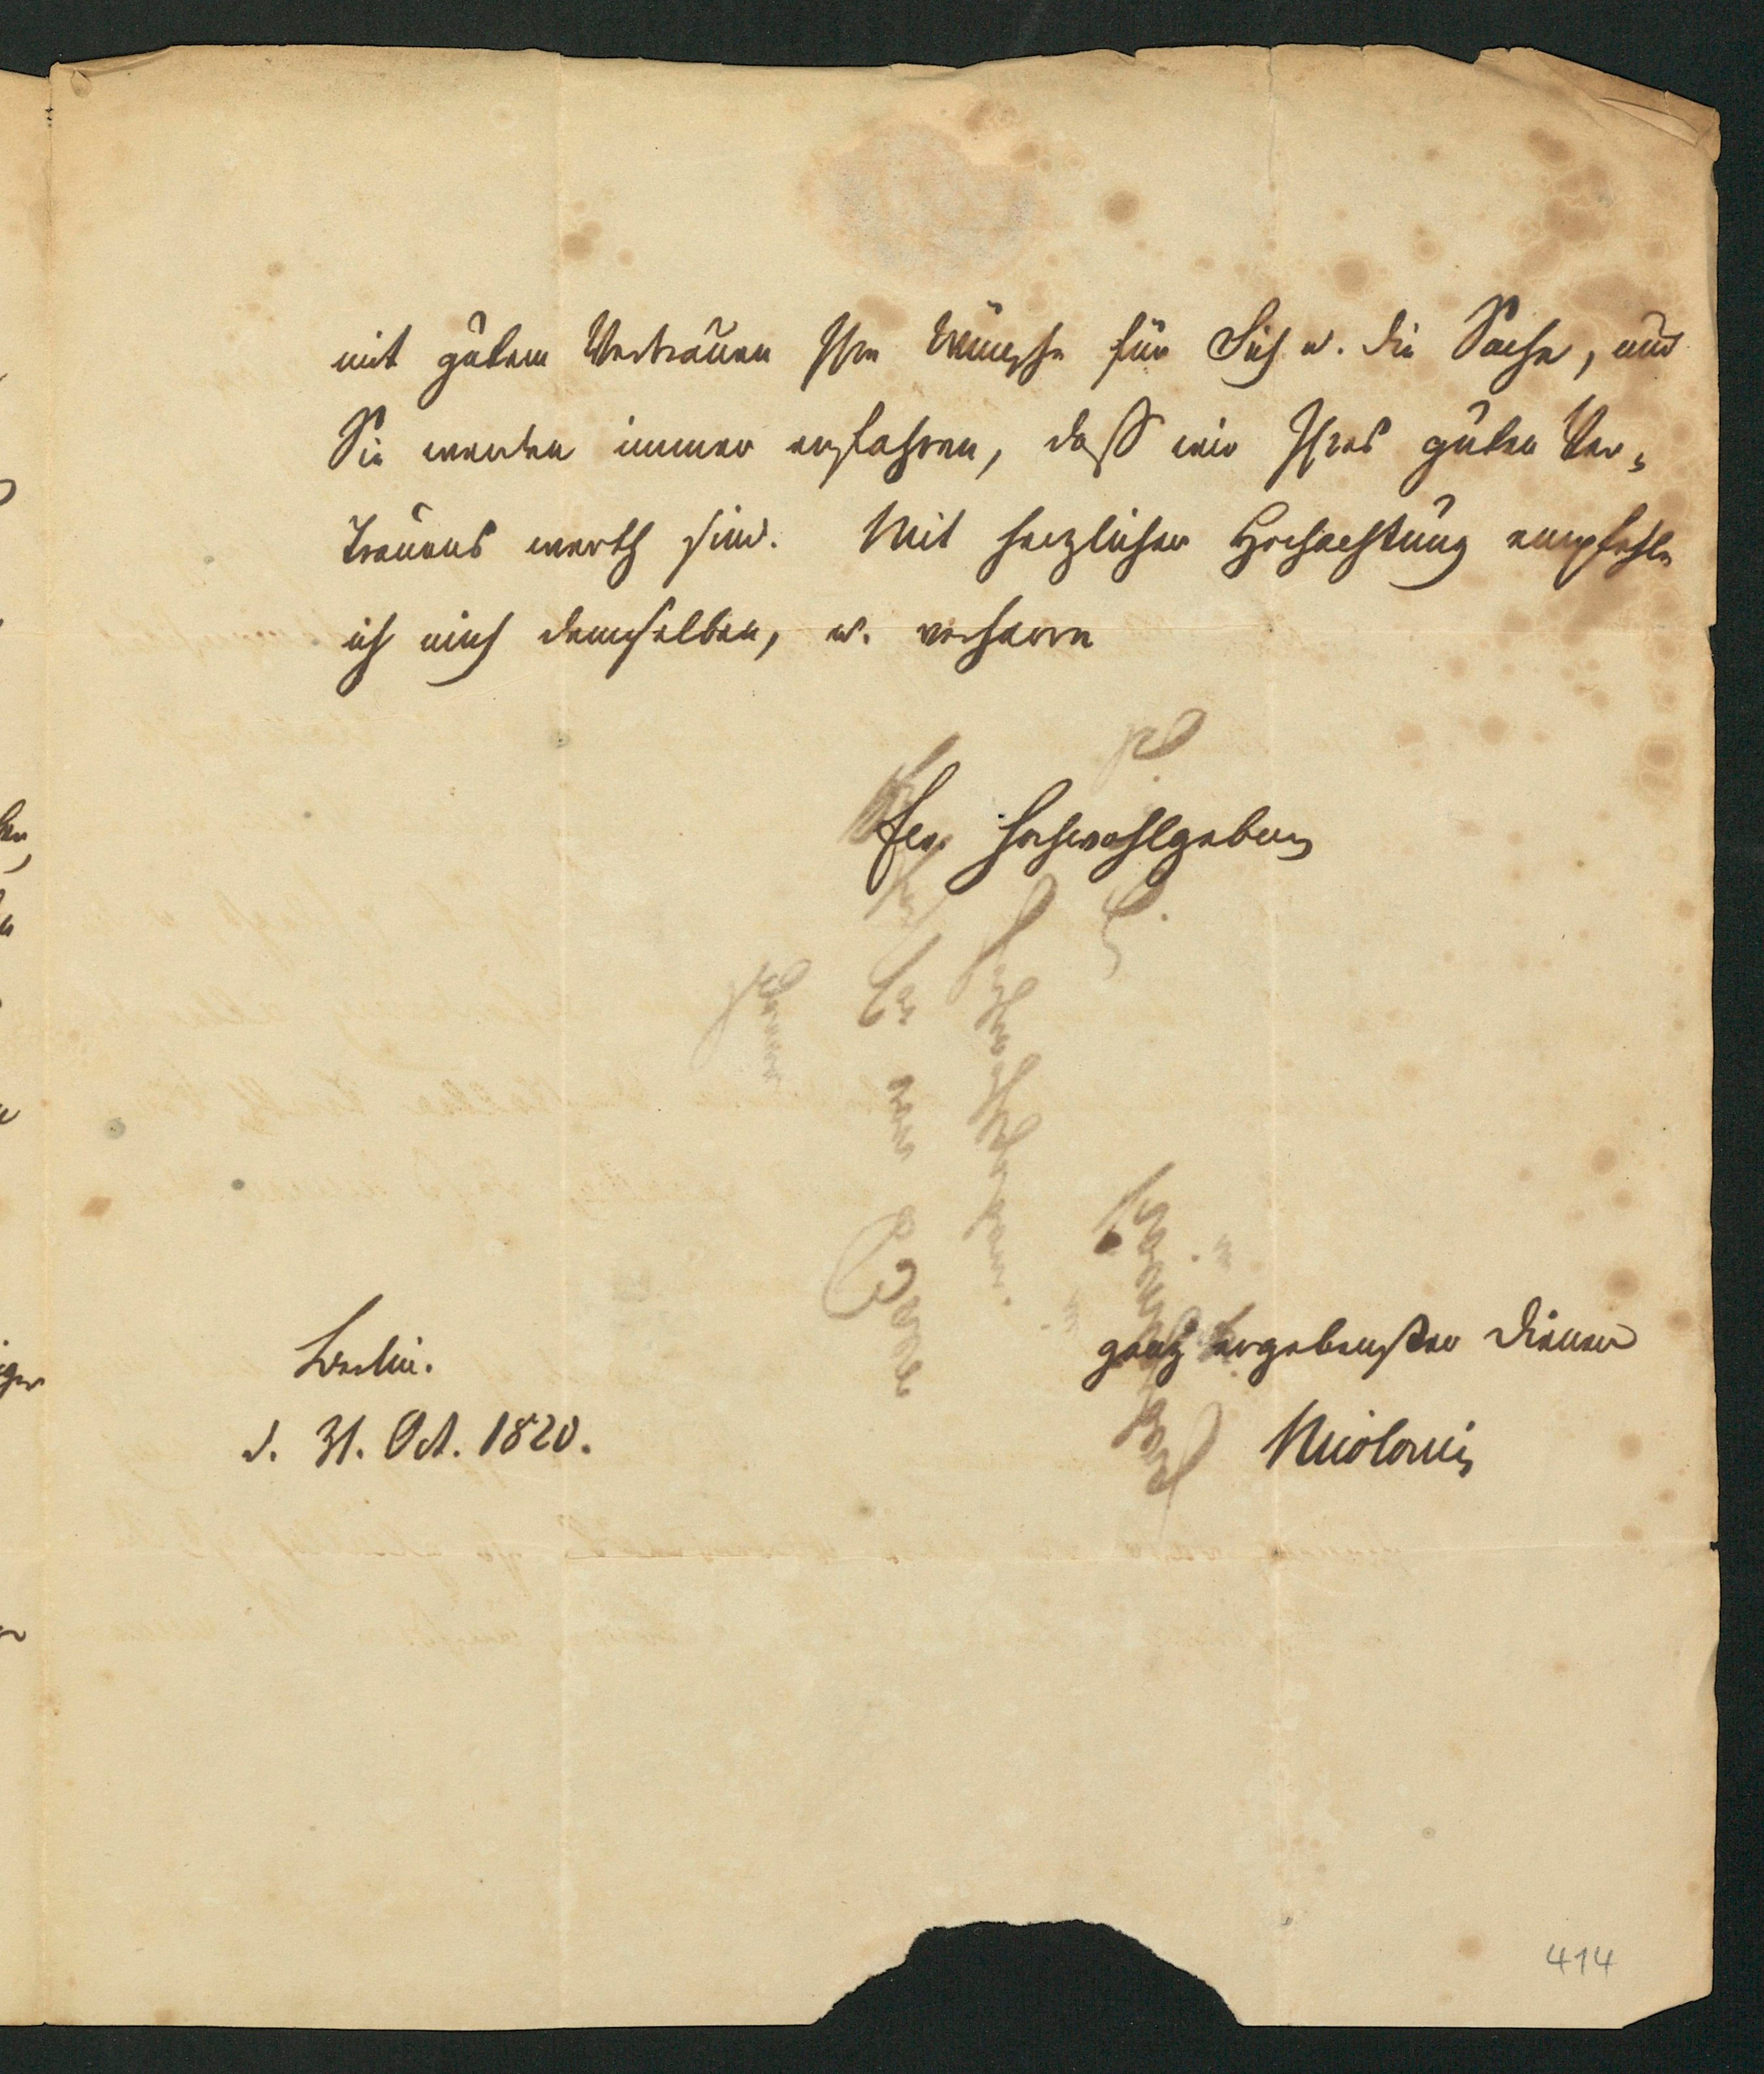 mit gutem Vertrauen Ihre Wünsche für Sich u. die Sache, und
Sie werden immer erfahren, daß wir Ihres guten Ver-
trauens werth sind. Mit herzlicher Hochachtung empfehle
ich mich demselben, u. verharre
Ew. Hochwohlgeboren
ganz ergebenster Diener
Berlin.
d. 31. Oct. 1820.
Nicolovius
414